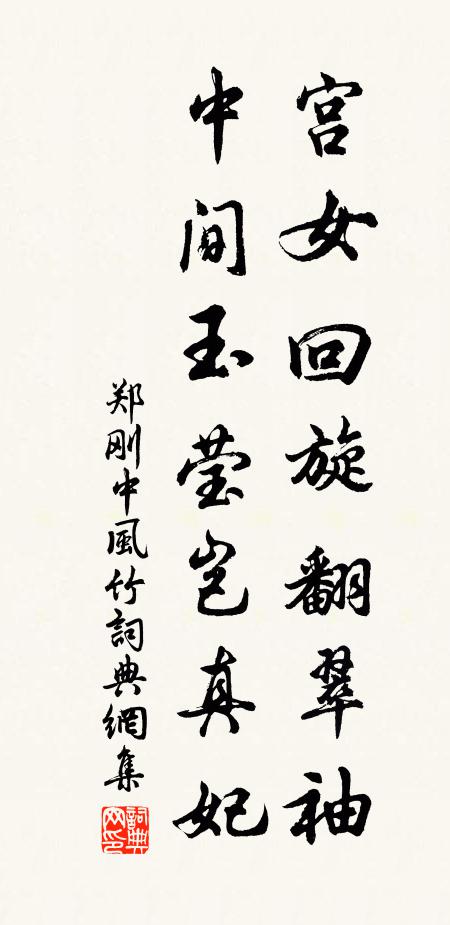 宫女回旋翻翠袖
中间玉莹岂真妃
郑刚中风竹詞典網集
詞典
网印